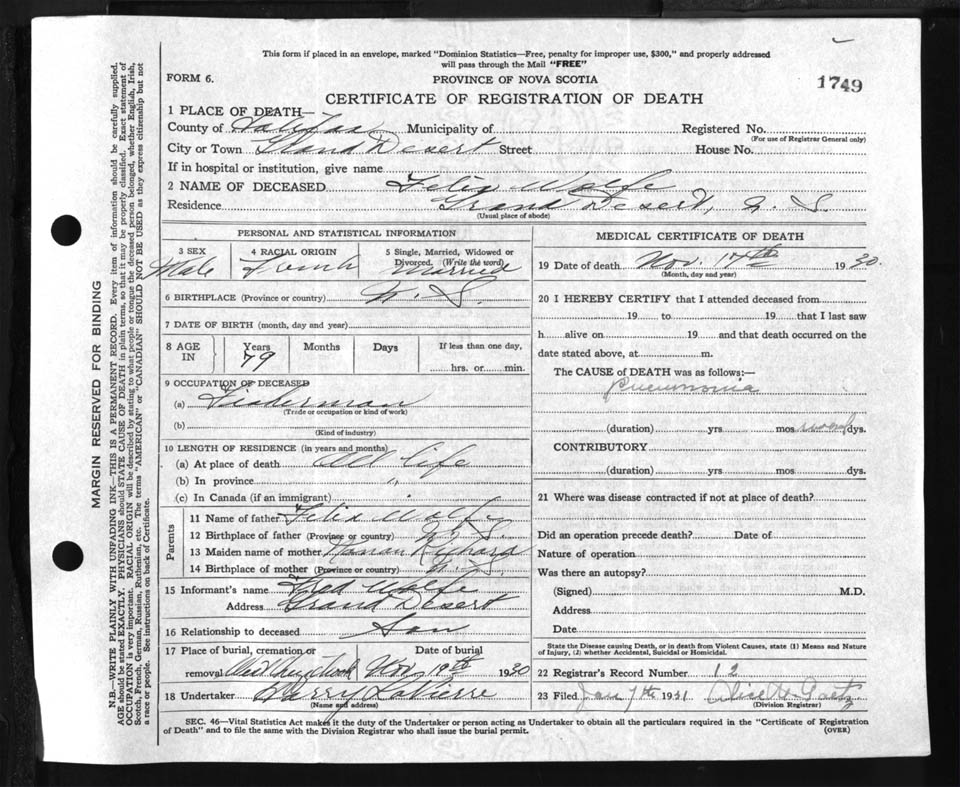 This form if placed in an envelope, marked "Dominion Statistics—Free, penalty for improper use, $300," and properly addressed
will pass through the Mail "FREE"
FORM 6.
PROVINCE OF NOVA SCOTIA
1749
CERTIFICATE OF REGISTRATION OF DEATH
1 PLACE OF DEATH—
County of Halifax Municipality of Registered No.
(For use of Registrar General only)
City or Town Grand Desert Street House No.
If in hospital or institution, give name
2 NAME OF DECEASED Felix Wolfe
Residence Grand Desert, N. S.
(Usual place of abode)
PERSONAL AND STATISTICAL INFORMATION
3 SEX
Male
4 RACIAL ORIGIN
French
5 Single, Married, Widowed or
Divorced. (Write the word)
Married
6 BIRTHPLACE (Province or country) N. S.
7 DATE OF BIRTH (month, day and year)
8 AGE IN
Years 79 Months Days If less than one day,
hrs. or min.
9 OCCUPATION OF DECEASED
(a) Fisherman
(Trade or occupation or kind of work)
(b)
(Kind of industry)
10 LENGTH OF RESIDENCE (in years and months)
(a) At place of death All life
(b) In province "
(c) In Canada (if an immigrant)
Parents
11 Name of father Felix Wolfe
12 Birthplace of father (Province or country) N. S.
13 Maiden name of mother Richard
14 Birthplace of mother (Province or country) N. S.
15 Informant's name Fred Wolfe
Address Grand Desert
16 Relationship to deceased Son
17 Place of burial, cremation or Date of burial
removal West Chezzetcook Nov 19th 1930
18 Undertaker Harry LaPierre
(Name and address)
MEDICAL CERTIFICATE OF DEATH
19 Date of death Nov. 17th 1930
(Month, day and year)
20 I HEREBY CERTIFY that I attended deceased from
19 to 19 that I last saw
h alive on 19 and that death occurred on
date stated above, at m.
The CAUSE of DEATH was as follows:—
Pneumonia
(duration) yrs mos dys.
CONTRIBUTORY
(duration) yrs mos. dys.
21 Where was disease contracted if not at place of death?
Did an operation precede death? Date of
Nature of operation
Was there an autopsy?
(Signed) M.D.
Address
Date
State the Disease causing Death, or in death from Violent Causes, state (1) Means and Nature
of Injury, (2) whether Accidental, Suicidal or Homicidal.
22 Registrar's Record Number 12
23 Filed Jan 7th 1931 Alice H. Gaetz
(Division Registrar)
SEC. 46—Vital Statistics Act makes it the duty of the Undertaker or person acting as Undertaker to obtain all the particulars required in the "Certificate of Registration
of Death" and to file the same with the Division Registrar who shall issue the burial permit.
(OVER)
MARGIN RESERVED FOR BINDING
N.B.—WRITE PLAINLY WITH UNFADING INK—THIS IS A PERMANENT RECORD. Every item of information should be carefully supplied.
AGE should be stated EXACTLY. PHYSICIANS should STATE CAUSE OF DEATH in plain terms, so that it may be properly classified. Exact statement of
OCCUPATION is very important. RACIAL ORIGIN will be described by stating to what people or tongue the deceased person belonged, whether English, Irish,
Scotch, French, German, Russian, Ruthenian, etc. The terms "AMERICAN" or "CANADIAN" SHOULD NOT BE USED as they express citizenship but not
a race or people. See instructions on back of Certificate.